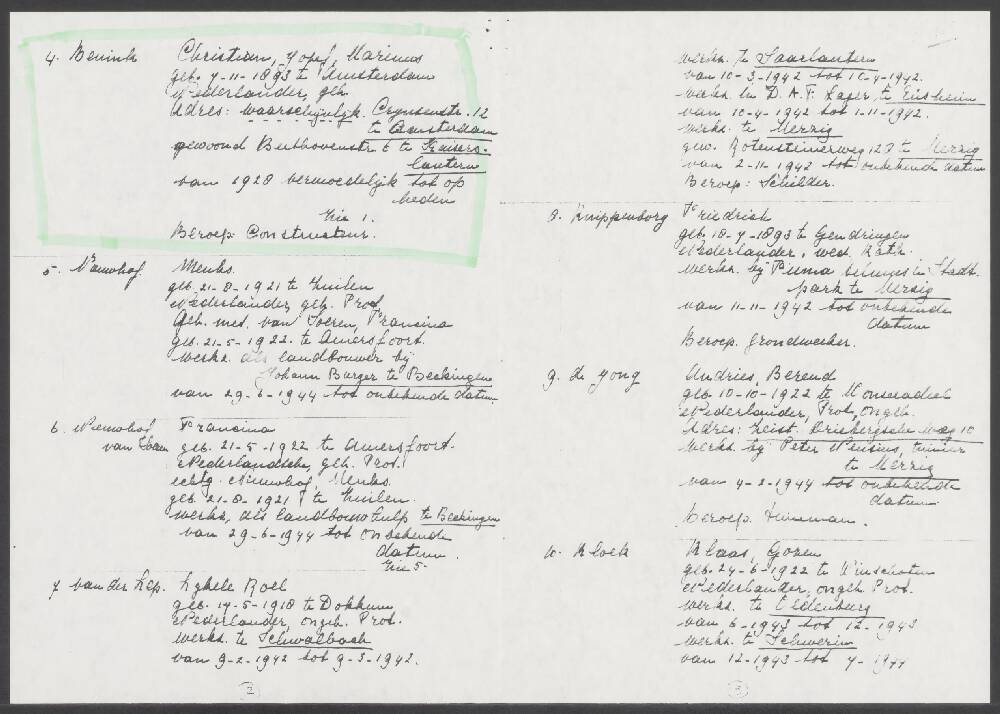 4. Benink Christiaan, Josef, Marinus
geb. 7-11-1893 te Amsterdam
Nederlander, geh.
Adres: waarschijnlijk Crynsenstr. 12
te Amsterdam
gewoond Beethovenstr. te Kaisers-
lautern
van 1928 vermoedelijk tot op
heden
Zie 1.
Beroep: Constructeur.
5. Nieuwhof Menks.
geb. 21-8-1921 te Zuilen
Nederlander, geh. Prot.
Geh. met van Soeren, Francina
geb. 21-5-1922 te Amersfoort.
werkz. als landbouwer bij
Johann Burger te Beckingen
van 29-6-1944 tot onbekende datum.
6. Nieuwhof Francina
van geb. 21-5-1922 te Amersfoort.
Nederlandsche, geh. Prot.
echtg. Nieuwhof, Menks.
geb. 21-8-1921 te Zuilen.
werkz. als landbouwhulp te Beckingen
van 29-6-1944 tot onbekende
datum.
Zie 5.
7 van der Lep. Lykele Roel
geb. 14-5-1918 te Dokkum
Nederlander, ongeh. Prot.
werkz. te Schwalbach
van 9-2-1942 tot 9-3-1942.
2
werkz. te Saarlautern
van 10-3-1942 tot 10-4-1942.
werkz. in D.A.F. Lager, te Ensheim
van 10-4-1942 tot 1-11-1942.
werkz. te Merzig
gew. Rotensteinerweg 128 te Merzig
van 2-11-1942 tot onbekende datum
Beroep: Schilder.
8. Knippenborg Friedrich
geb. 18-7-1893 te Gendringen
Nederlander, wed. Kath.
werkz. bij Firma in Stadt-
park te Merzig
van 11-11-1942 tot onbekende
datum
Beroep. grondwerker.
9. de Jong Andries, Berend
geb. 10-10-1922 te Wonseradeel
Nederlander, Prot. ongeh.
Adres: Zeist. Driebergsche weg 10
werkz. bij Peter tuinier
te Merzig
van 4-2-1944 tot onbekende
datum
beroep. Tuinman.
10. Kloek Klaas, Gozen
geb. 24-6-1922 te Winschoten
Nederlander, ongeh. Prot.
werkz. te Oldenburg
van 6-1943 tot 12-1943
werkz. te Schwerin
van 12-1943 tot 7-1944
3